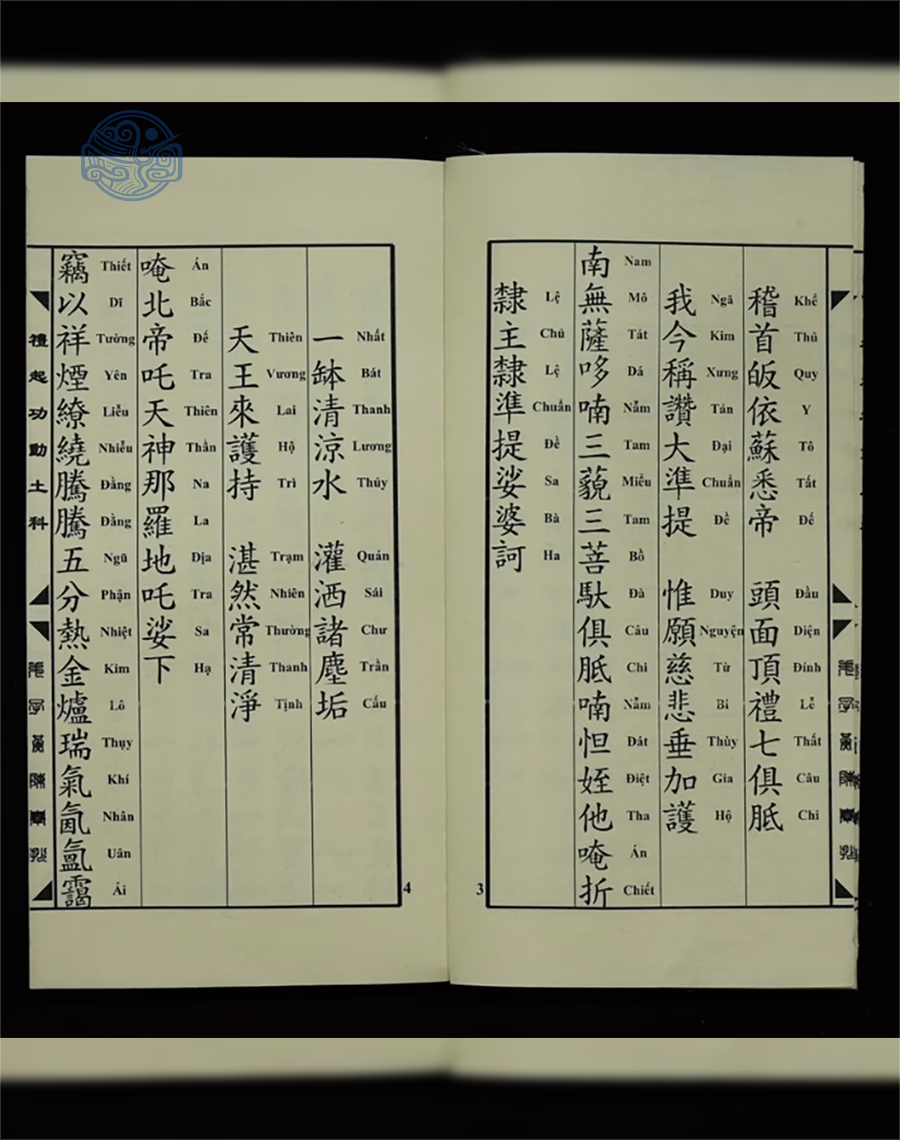 稽首皈依蘇悉帝 頭面頂禮七俱胝
Khể Thủ Quy Y Tô Tất Đế Đầu Diện Đính Lễ Thất Câu Chi
我今稱讚大準提 惟願慈悲垂加護
Ngã Kim Xưng Tán Đại Chuẩn Đề Duy Nguyện Từ Bi Thùy Gia Hộ
南無薩哆喃三藐三菩馱俱胝喃怛姪他唵折
Nam Mô Tát Dá Nẵm Tam Miễu Tam Bồ Đà Câu Chi Nẵm Đát Điệt Tha Án Chiết
隸主隸準提娑婆訶
Lệ Chủ Lệ Chuẩn Đề Sa Bà Ha
3
一缽清涼水 灌洒諸塵垢
Nhất Bát Thanh Lương Thủy Quán Sái Chư Trần Cấu
天王來護持 湛然常清淨
Thiên Vương Lai Hộ Trì Trạm Nhiên Thường Thanh Tịnh
唵北帝吒天神那羅地吒娑下
Án Bắc Đế Tra Thiên Thần Na La Địa Tra Sa Hạ
竊以祥煙繚繞騰騰五分熱金爐瑞氣氤氳靄
Thiết Dĩ Tường Yên Liễu Nhiễu Đằng Đằng Ngũ Phận Nhiệt Kim Lô Thụy Khí Nhân Uân Ái
禮起功動土科
4